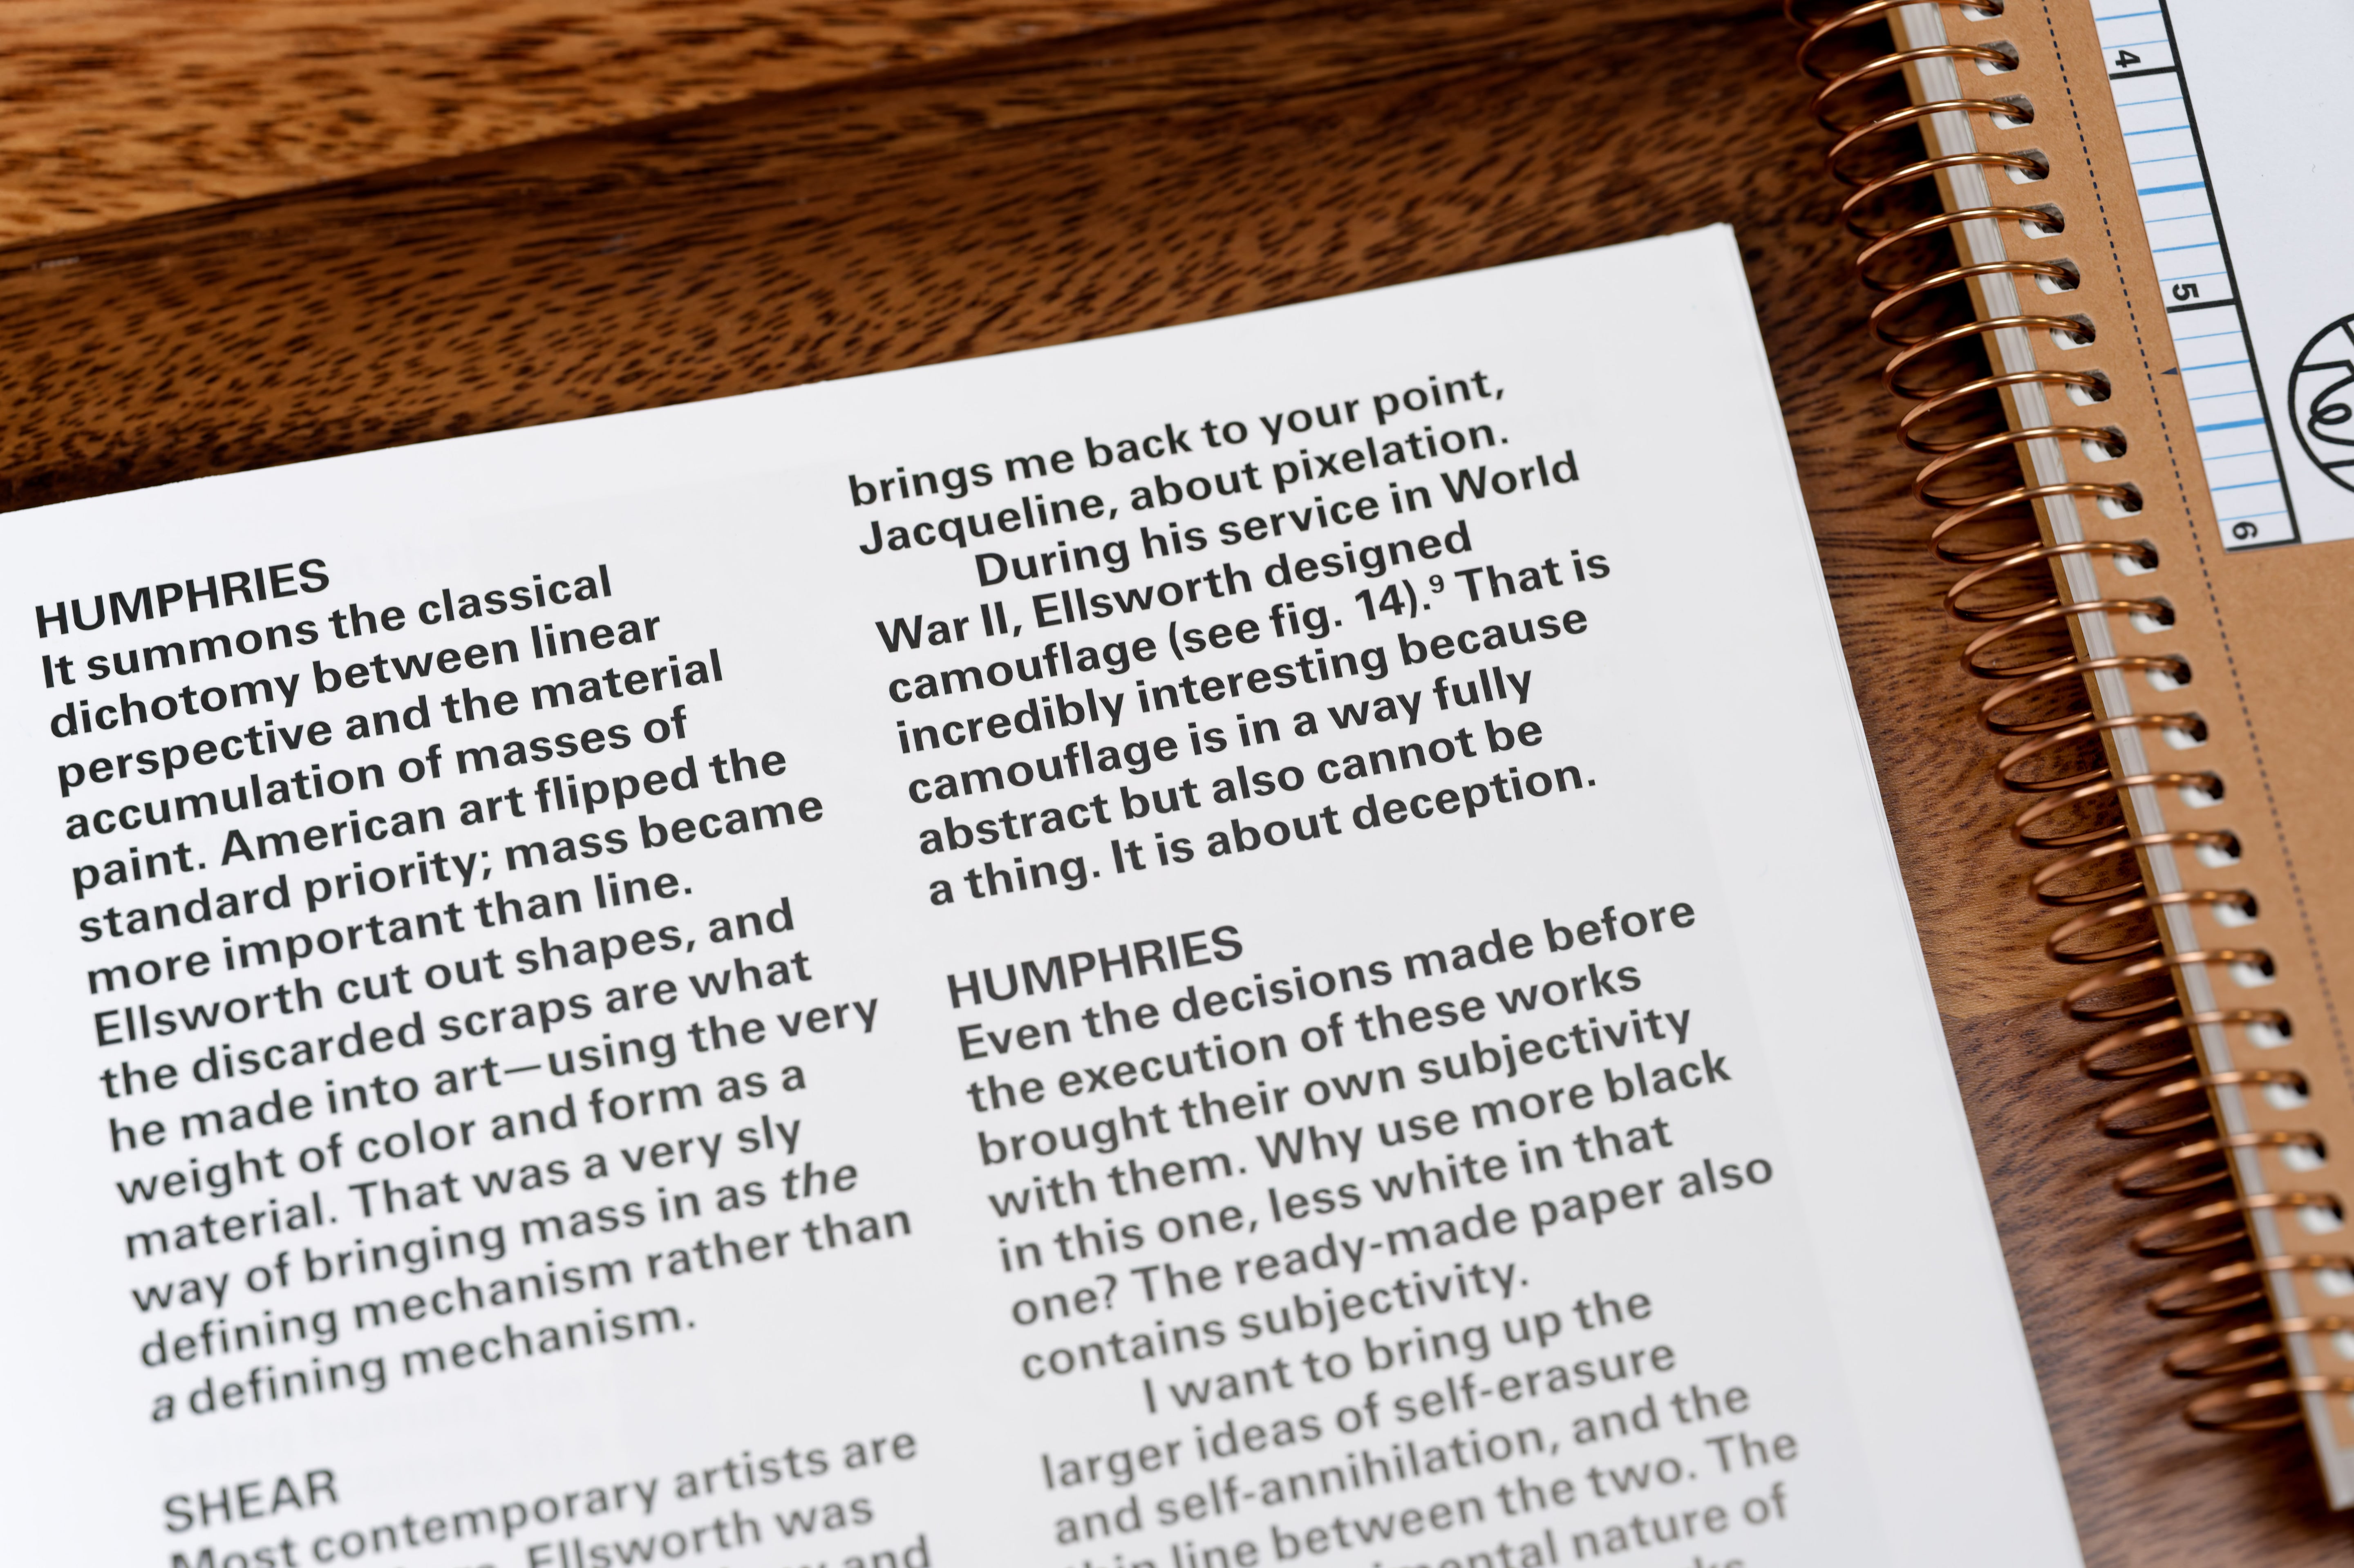 HUMPHRIES
It summons the classical
dichotomy between linear
perspective and the material
accumulation of masses of
paint. American art flipped the
standard priority; mass became
more important than line.
Ellsworth cut out shapes, and
the discarded scraps are what
he made into art—using the very
weight of color and form as a
material. That was a very sly
way of bringing mass in as the
defining mechanism rather than
a defining mechanism.
SHEAR
Most contemporary artists are
Ellsworth was
and
brings me back to your point,
Jacqueline, about pixelation.
During his service in World
War II, Ellsworth designed
camouflage (see fig. 14).⁹ That is
incredibly interesting because
camouflage is in a way fully
abstract but also cannot be
a thing. It is about deception.
HUMPHRIES
Even the decisions made before
the execution of these works
brought their own subjectivity
with them. Why use more black
in this one, less white in that
one? The ready-made paper also
contains subjectivity.
I want to bring up the
larger ideas of self-erasure
and self-annihilation, and the
thin line between the two. The
nature of
4
5
6